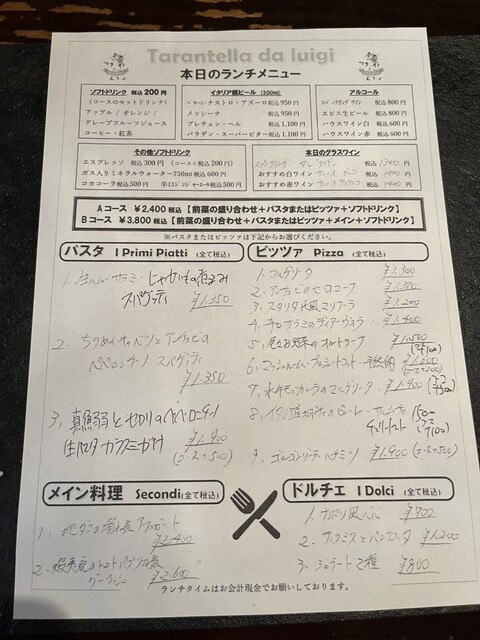 Tarantella da luigi
本日のランチメニュー
ソフトドリンク 税込 200 円
(コースのセットドリンク)
アップル / オレンジ /
グレープフルーツジュース
コーヒー・紅茶
イタリア瓶ビール (330ml)
ナストロ・アズーロ 税込 950 円
メッシーナ 税込 950 円
プレチェン・ヘル 税込 1,100 円
バラデン・スーパービター 税込 1,100 円
アルコール
スパークリングワイン 税込 800 円
エビス生ビール 税込 800 円
ハウスワイン白 税込 600 円
ハウスワイン赤 税込 600 円
その他ソフトドリンク
エスプレッソ 税込 300 円 (コース+税込 200 円)
ガス入りミネラルウォーター750ml 税込 600 円
コカコーラ 税込 500 円 辛口ジンジャーエール 税込 500 円
本日のグラスワイン
スパークリング 税込 1300 円
おすすめ白ワイン 税込 1400 円
おすすめ赤ワイン 税込 1400 円
A コース ¥2,400 税込 【前菜の盛り合わせ+パスタまたはピッツァ+ソフトドリンク】
B コース ¥3,800 税込 【前菜の盛り合わせ+パスタまたはピッツァ+メイン+ソフトドリンク】
※パスタまたはピッツァは下記からお選びください。
パスタ I Primi Piatti (全て税込)
1. サラミ じゃがいもの煮込み
スパゲッティ ¥1.350
2. ちりめんキャベツとアンチョビの
ペペロンチーノ スパゲティ
¥1.350
3. 真鯛とセロリのペペロンチーノ
生パスタ カラスミがけ ¥1.900
(コース+500)
ピッツァ Pizza (全て税込)
1. マルゲリータ ¥1.300
2. ¥1.350
3. スタリタ風マリナーラ ¥1.200
4. サラミのディアヴォラ ¥1.400
5. 野菜のオルトラーナ ¥1.500
(コース+100)
6. マッシュルーム プロシュットコット ¥1.600
(コース+200)
7. 水牛モッツァレラのマルゲリータ ¥1.900 (コース+500)
8. 1500
(コース+100)
9. ゴルゴンゾーラ ハチミツ ¥1.900 (コース+500)
メイン料理 Secondi (全て税込)
1. 地タコの
¥2.400
2. トマト 煮
¥2.600
ドルチェ I Dolci (全て税込)
1. ナポリ風ババ ¥700
2. ティラミスとパンナコッタ ¥1.200
3. ジェラート2種 ¥800
ランチタイムはお会計現金でお願いしております。